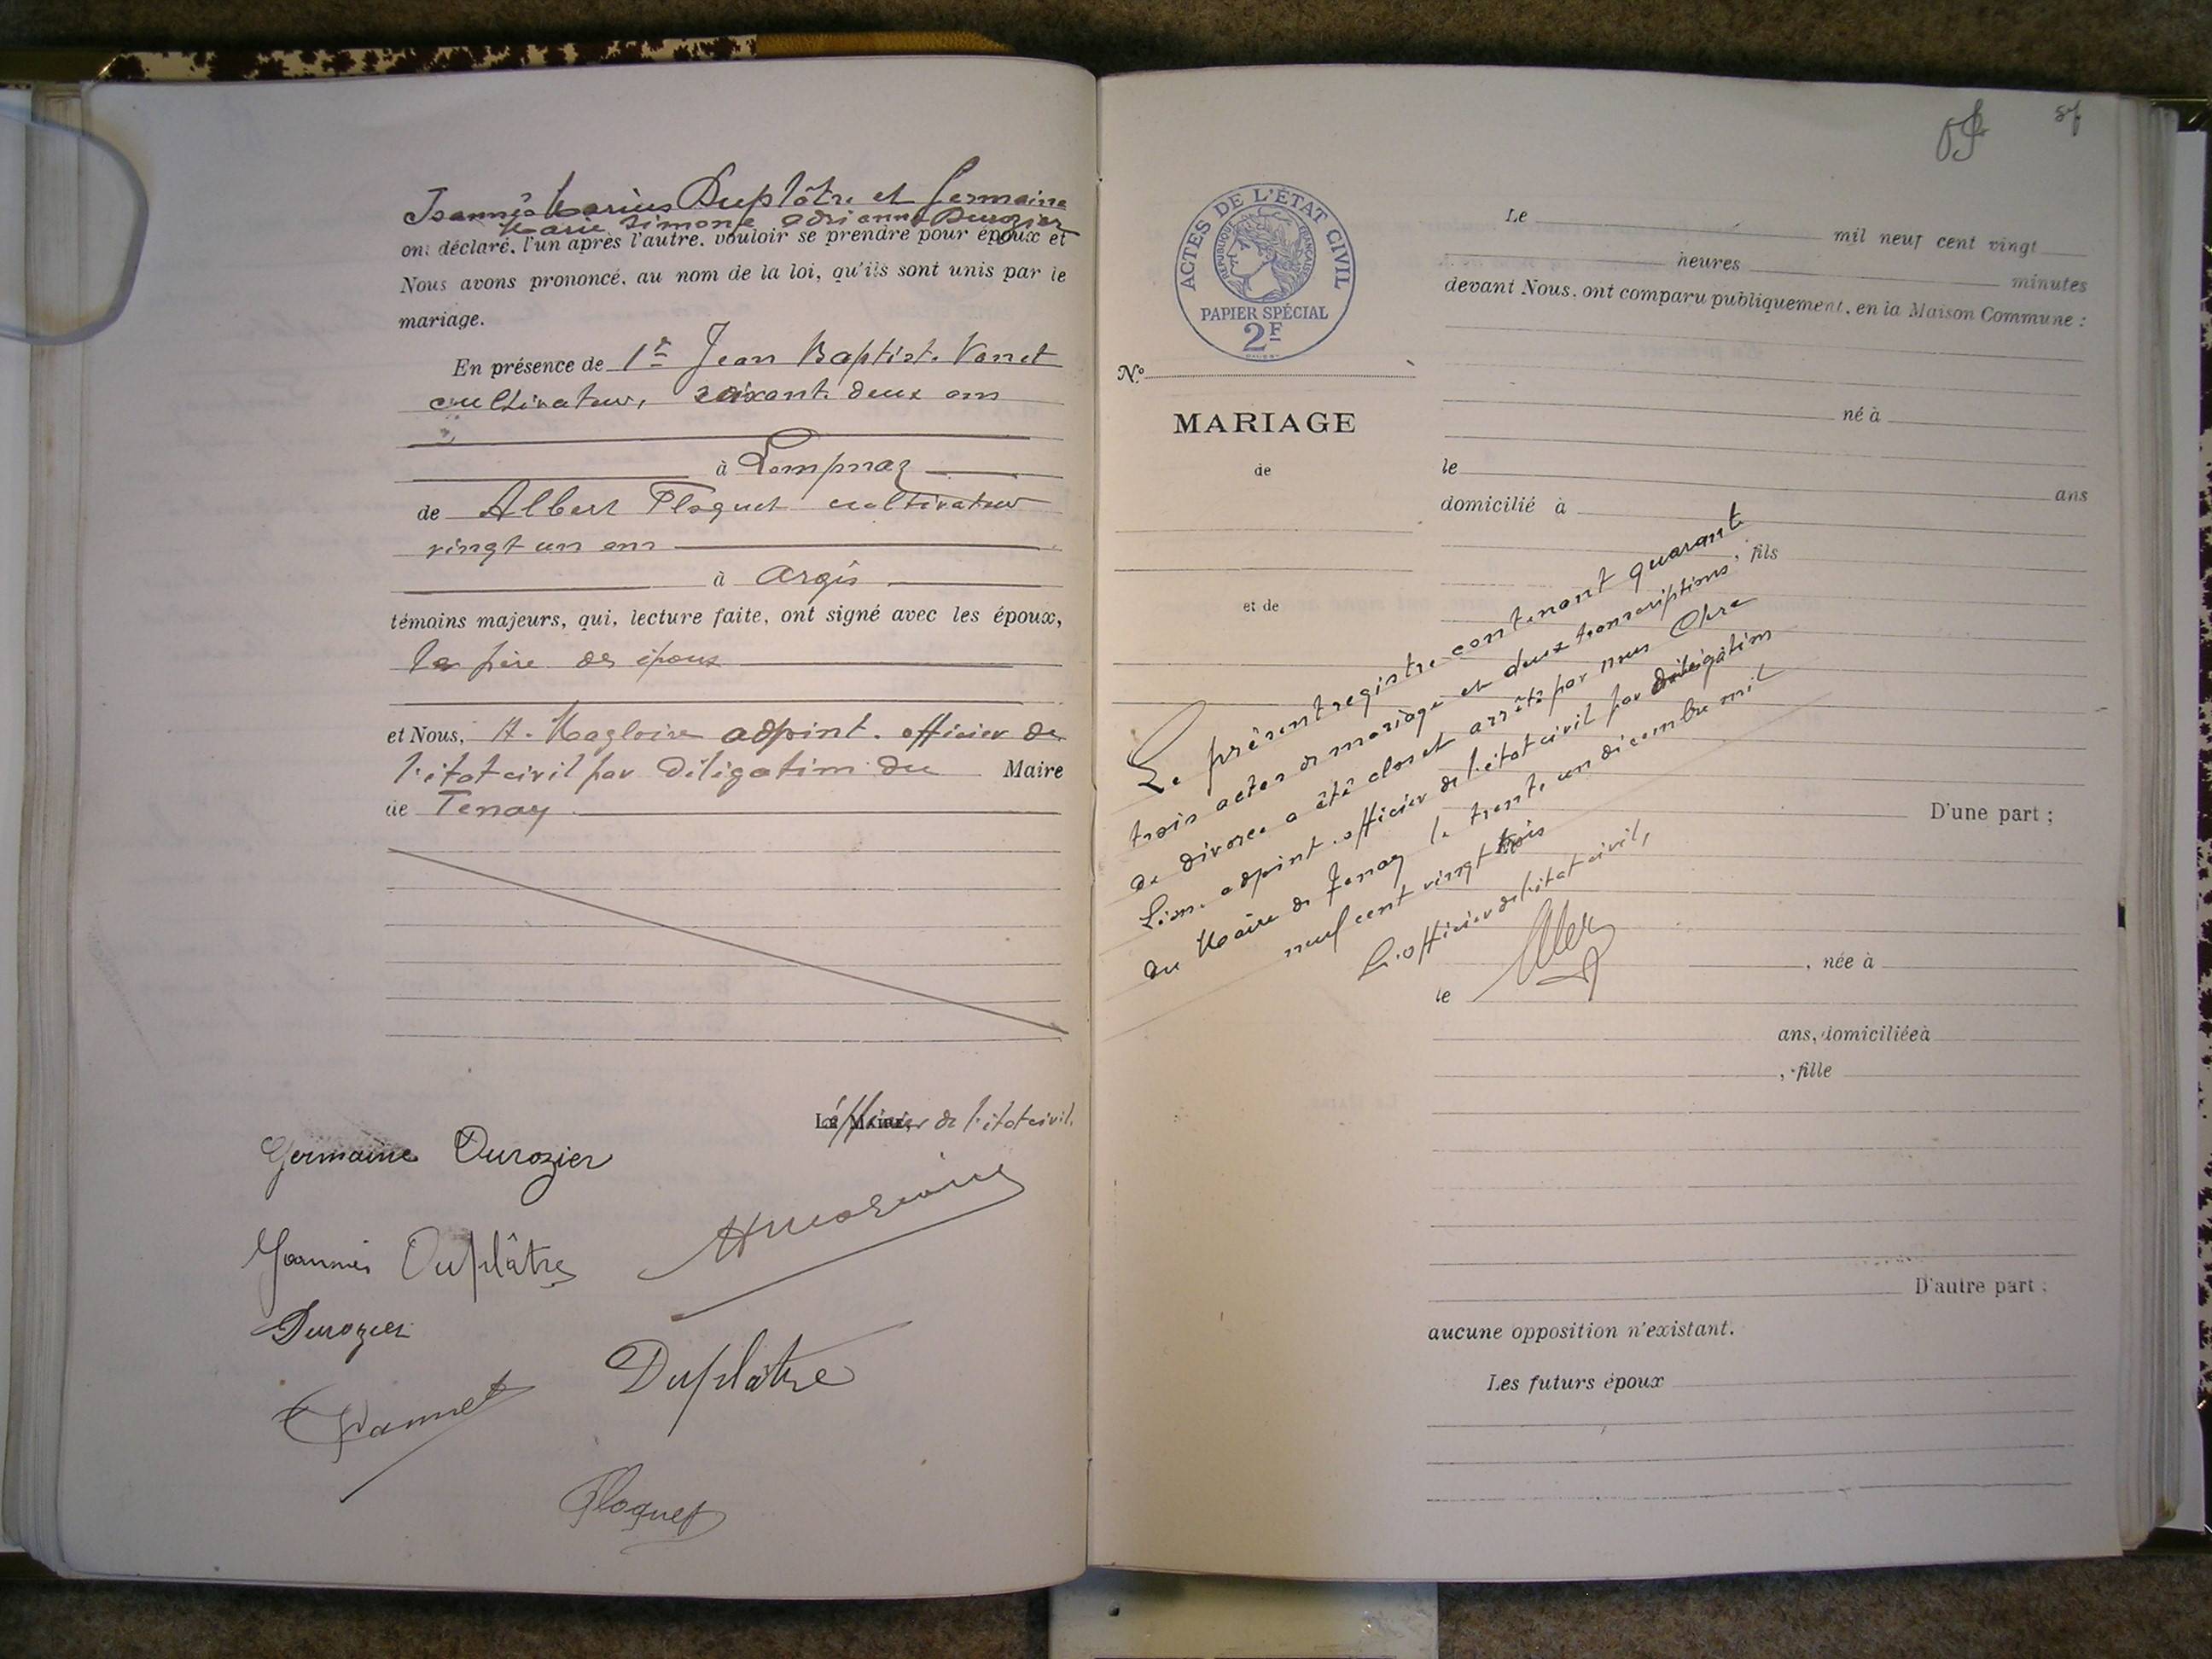 Joannès Marius Duplâtre et Germaine
Marie Simone Adrienne Durozier
ont déclaré, l'un après l'autre, vouloir se prendre pour époux et
Nous avons prononcé, au nom de la loi, qu'ils sont unis par le
mariage.
En présence de 1º Jean Baptiste Vannet
cultivateur, soixante deux ans
à Lompnaz
de Albert Floquet cultivateur
vingt un ans
à Argis
témoins majeurs, qui, lecture faite, ont signé avec les époux,
le père des époux
et Nous, H. Magloire adjoint. officier de
l'état civil par délégation du Maire
de Tenay
Le Maire,
officier de l'état civil.
Germaine Durozier
Joannès Duplâtre
Durozier
Duplâtre
Vannet
Floquet
ACTES DE L'ÉTAT CIVIL
RÉPUBLIQUE FRANÇAISE
PAPIER SPÉCIAL
2F
Nº
MARIAGE
de
et de
Le mil neuf cent vingt
heures minutes
devant Nous, ont comparu publiquement, en la Maison Commune :
né à
le ans
domicilié à
, fils
Le présent registre contenant quarante
trois actes de mariage et deux transcriptions
de divorce a été clos et arrêté par nous
adjoint. officier de l'état civil par délégation
du Maire de Tenay le trente un décembre mil
neuf cent vingt trois
L'officier de l'état civil,
D'une part ;
, née à
le
ans, domiciliée à
, fille
D'autre part ;
aucune opposition n'existant.
Les futurs époux